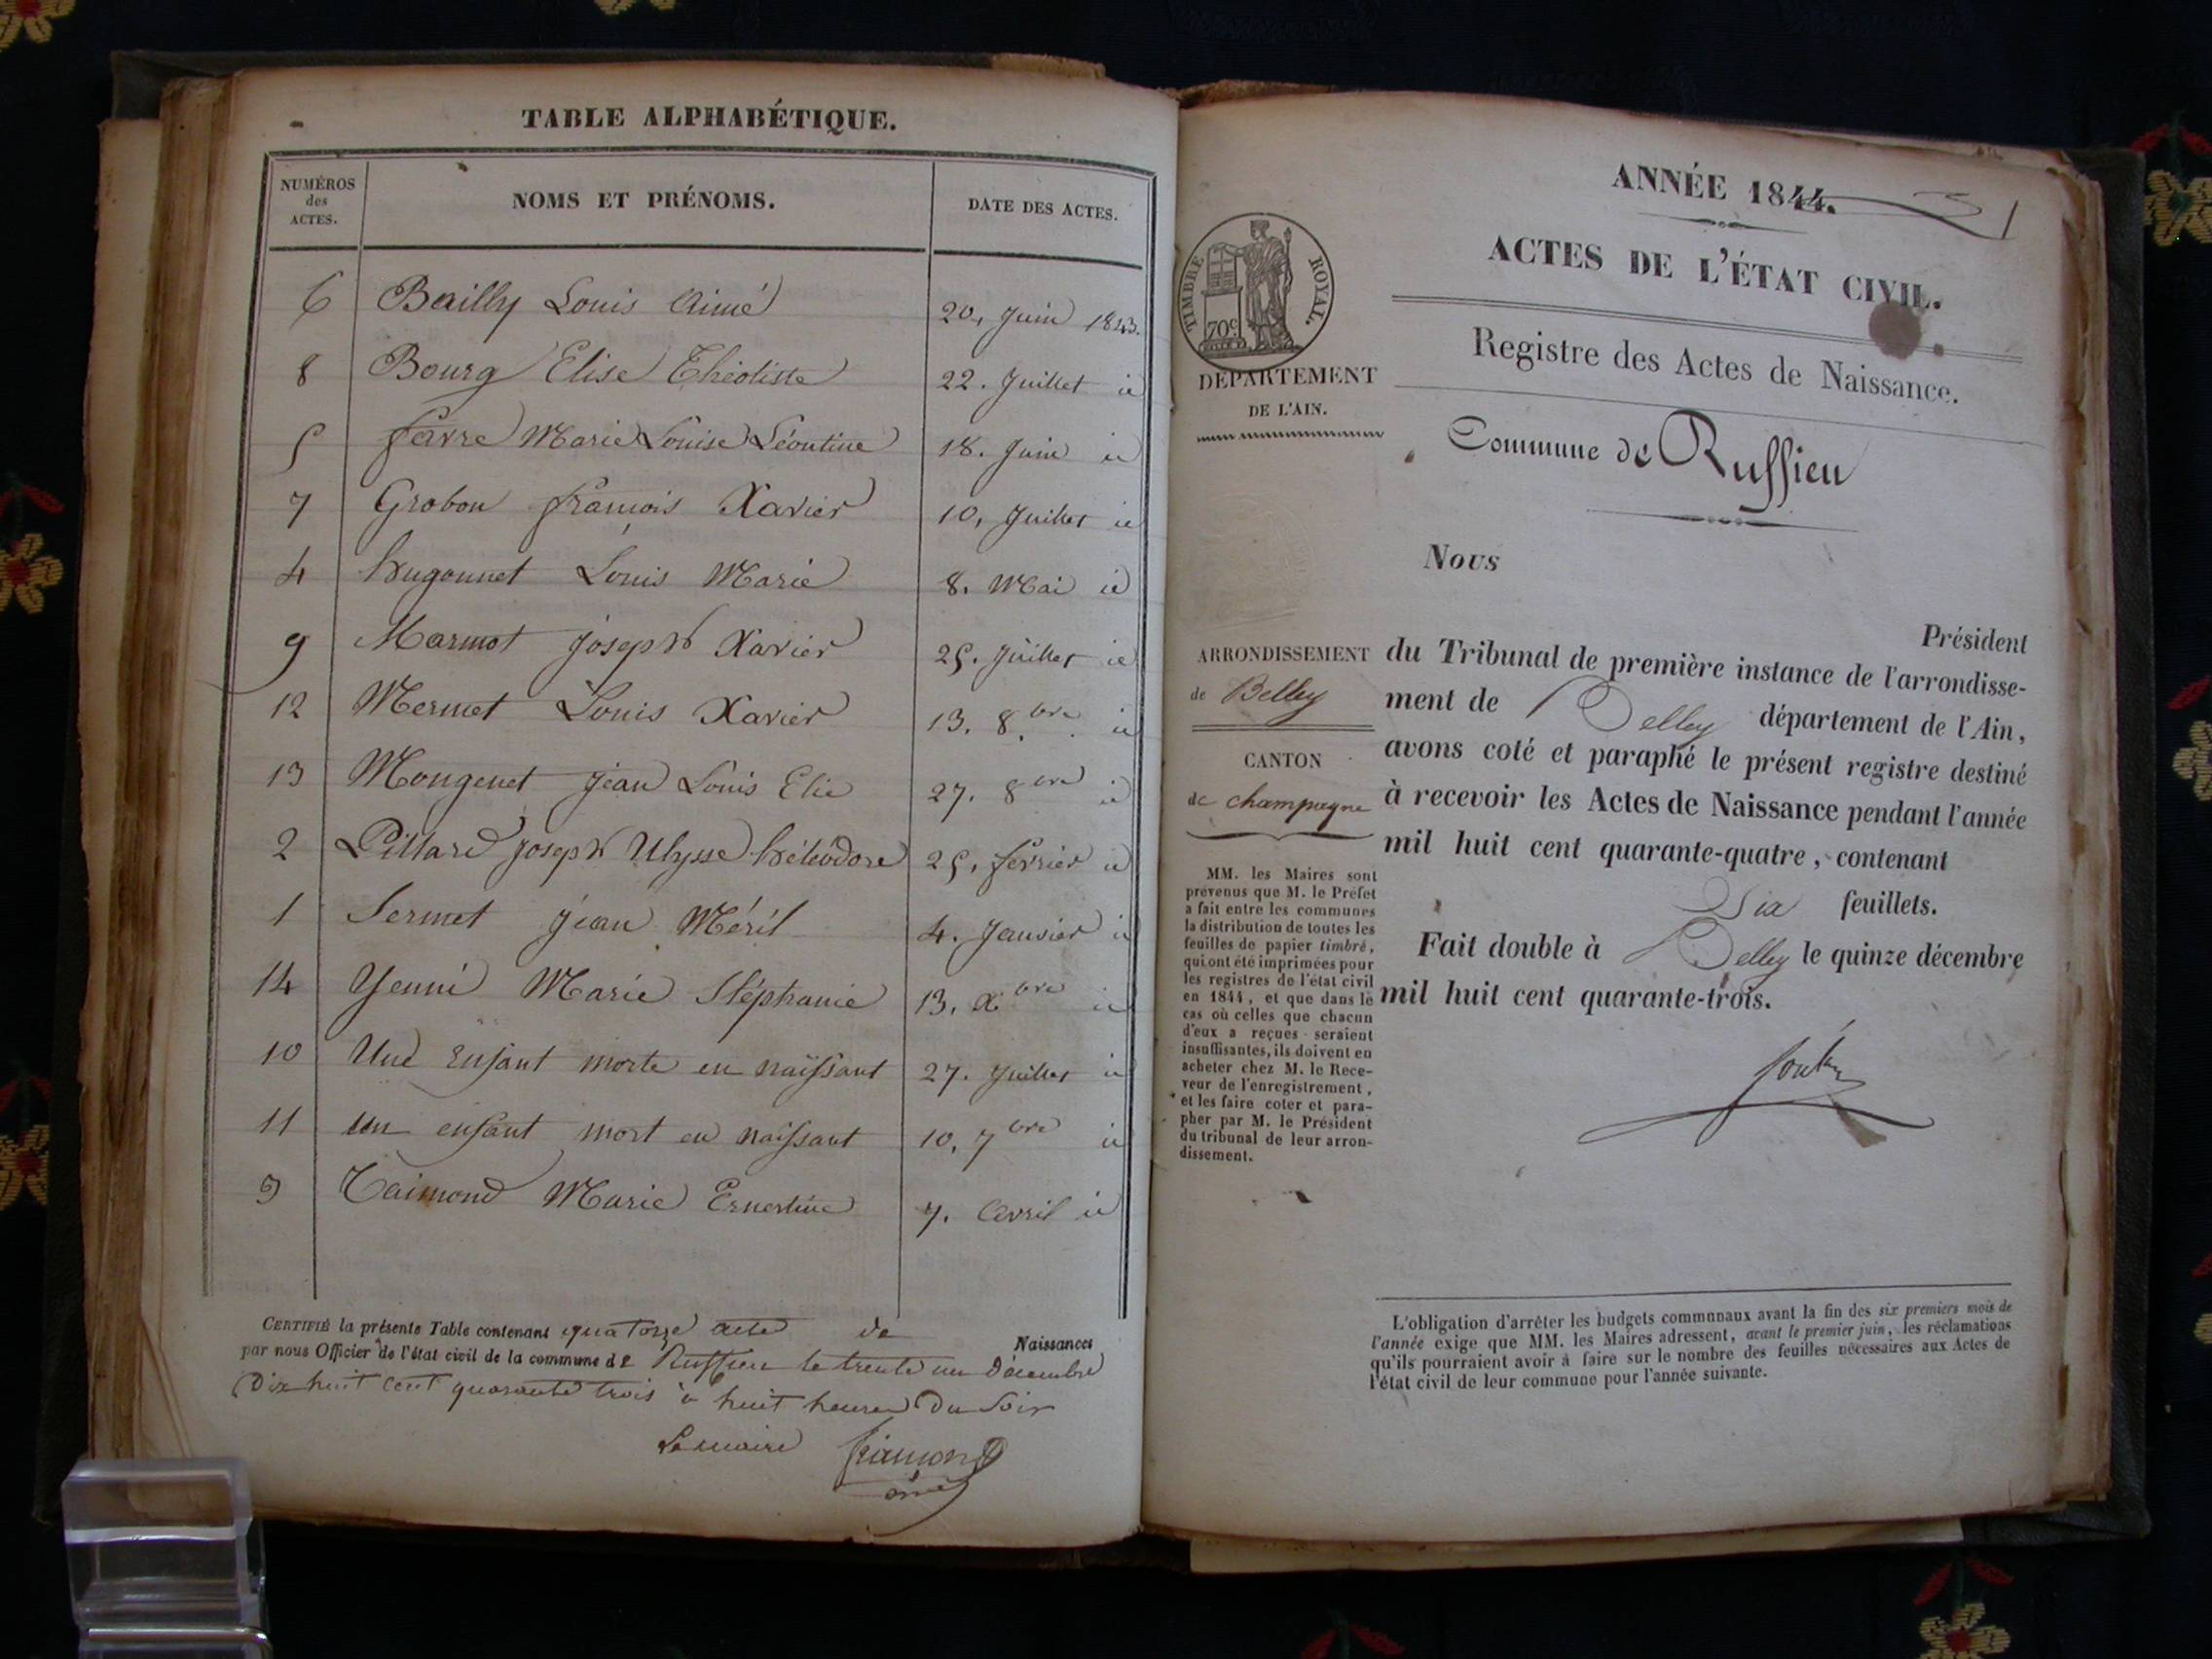 TABLE ALPHABÉTIQUE.
NUMÉROS des ACTES. NOMS ET PRÉNOMS. DATE DES ACTES.
6 Bailly Louis Aimé 20, Juin 1843.
8 Bourg Elise Théotiste 22. Juillet id
5 favre Marie Louise Léontine 18. Juin id
7 Grobon françois Xavier 10, Juillet id
4 hugonnet Louis Marie 8. Mai id
9 Marmot joseph Xavier 25. Juillet id
12 Mermet Louis Xavier 13. 8bre id
13 Mongenet jean Louis Elie 27. 8bre id
2 Pillard joseph Ulysse héliodore 25, fevrier id
1 Sermet jean Méril 4. Janvier id
14 Yenni Marie Stéphanie 13, Xbre id
10 Une Enfant morte en naissant 27. Juillet id
11 un enfant mort en naissant 10, 7bre id
3 Marie Ernestine 7. Avril id
CERTIFIÉ la présente Table contenant quatorze acte de Naissances
par nous Officier de l'état civil de la commune de Ruffieu le trente un Décembre
Dix huit cent quarante trois à huit heures Du Soir
Le maire
ANNÉE 1844.
ACTES DE L'ÉTAT CIVIL.
Registre des Actes de Naissance.
Commune de Ruffieu
TIMBRE ROYAL.
70c.
DÉPARTEMENT
DE L'AIN.
ARRONDISSEMENT
de Belley
CANTON
de champagne
MM. les Maires sont
prévenus que M. le Préfet
a fait entre les communes
la distribution de toutes les
feuilles de papier timbré,
qui ont été imprimées pour
les registres de l'état civil
en 1844, et que dans le
cas où celles que chacun
d'eux a reçues seraient
insuffisantes, ils doivent en
acheter chez M. le Rece-
veur de l'enregistrement,
et les faire coter et para-
pher par M. le Président
du tribunal de leur arron-
dissement.
Nous
Président
du Tribunal de première instance de l'arrondisse-
ment de Belley département de l'Ain,
avons coté et paraphé le présent registre destiné
à recevoir les Actes de Naissance pendant l'année
mil huit cent quarante-quatre, contenant
Six feuillets.
Fait double à Belley le quinze décembre
mil huit cent quarante-trois.
L'obligation d'arrêter les budgets communaux avant la fin des six premiers mois de
l'année exige que MM. les Maires adressent, avant le premier juin, les réclamations
qu'ils pourraient avoir à faire sur le nombre des feuilles nécessaires aux Actes de
l'état civil de leur commune pour l'année suivante.